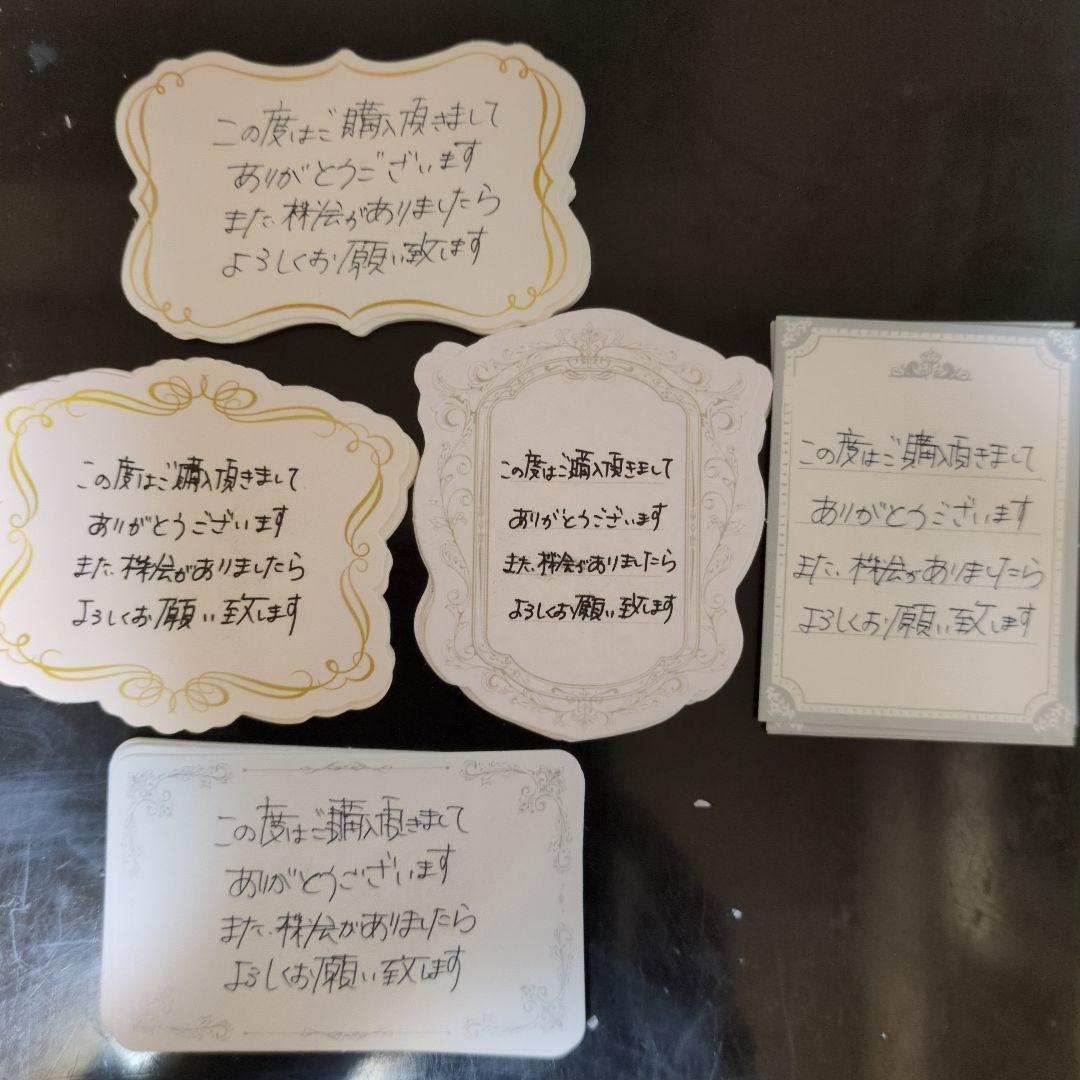 この度はご購入頂きまして
ありがとうございます
また、株会がありましたら
よろしくお願い致します
この度はご購入頂きまして
ありがとうございます
また、株会がありましたら
よろしくお願い致します
この度はご購入頂きまして
ありがとうございます
また、株会がありましたら
よろしくお願い致します
この度はご購入頂きまして
ありがとうございます
また、株会がありましたら
よろしくお願い致します
この度はご購入頂きまして
ありがとうございます
また、株会がありましたら
よろしくお願い致します